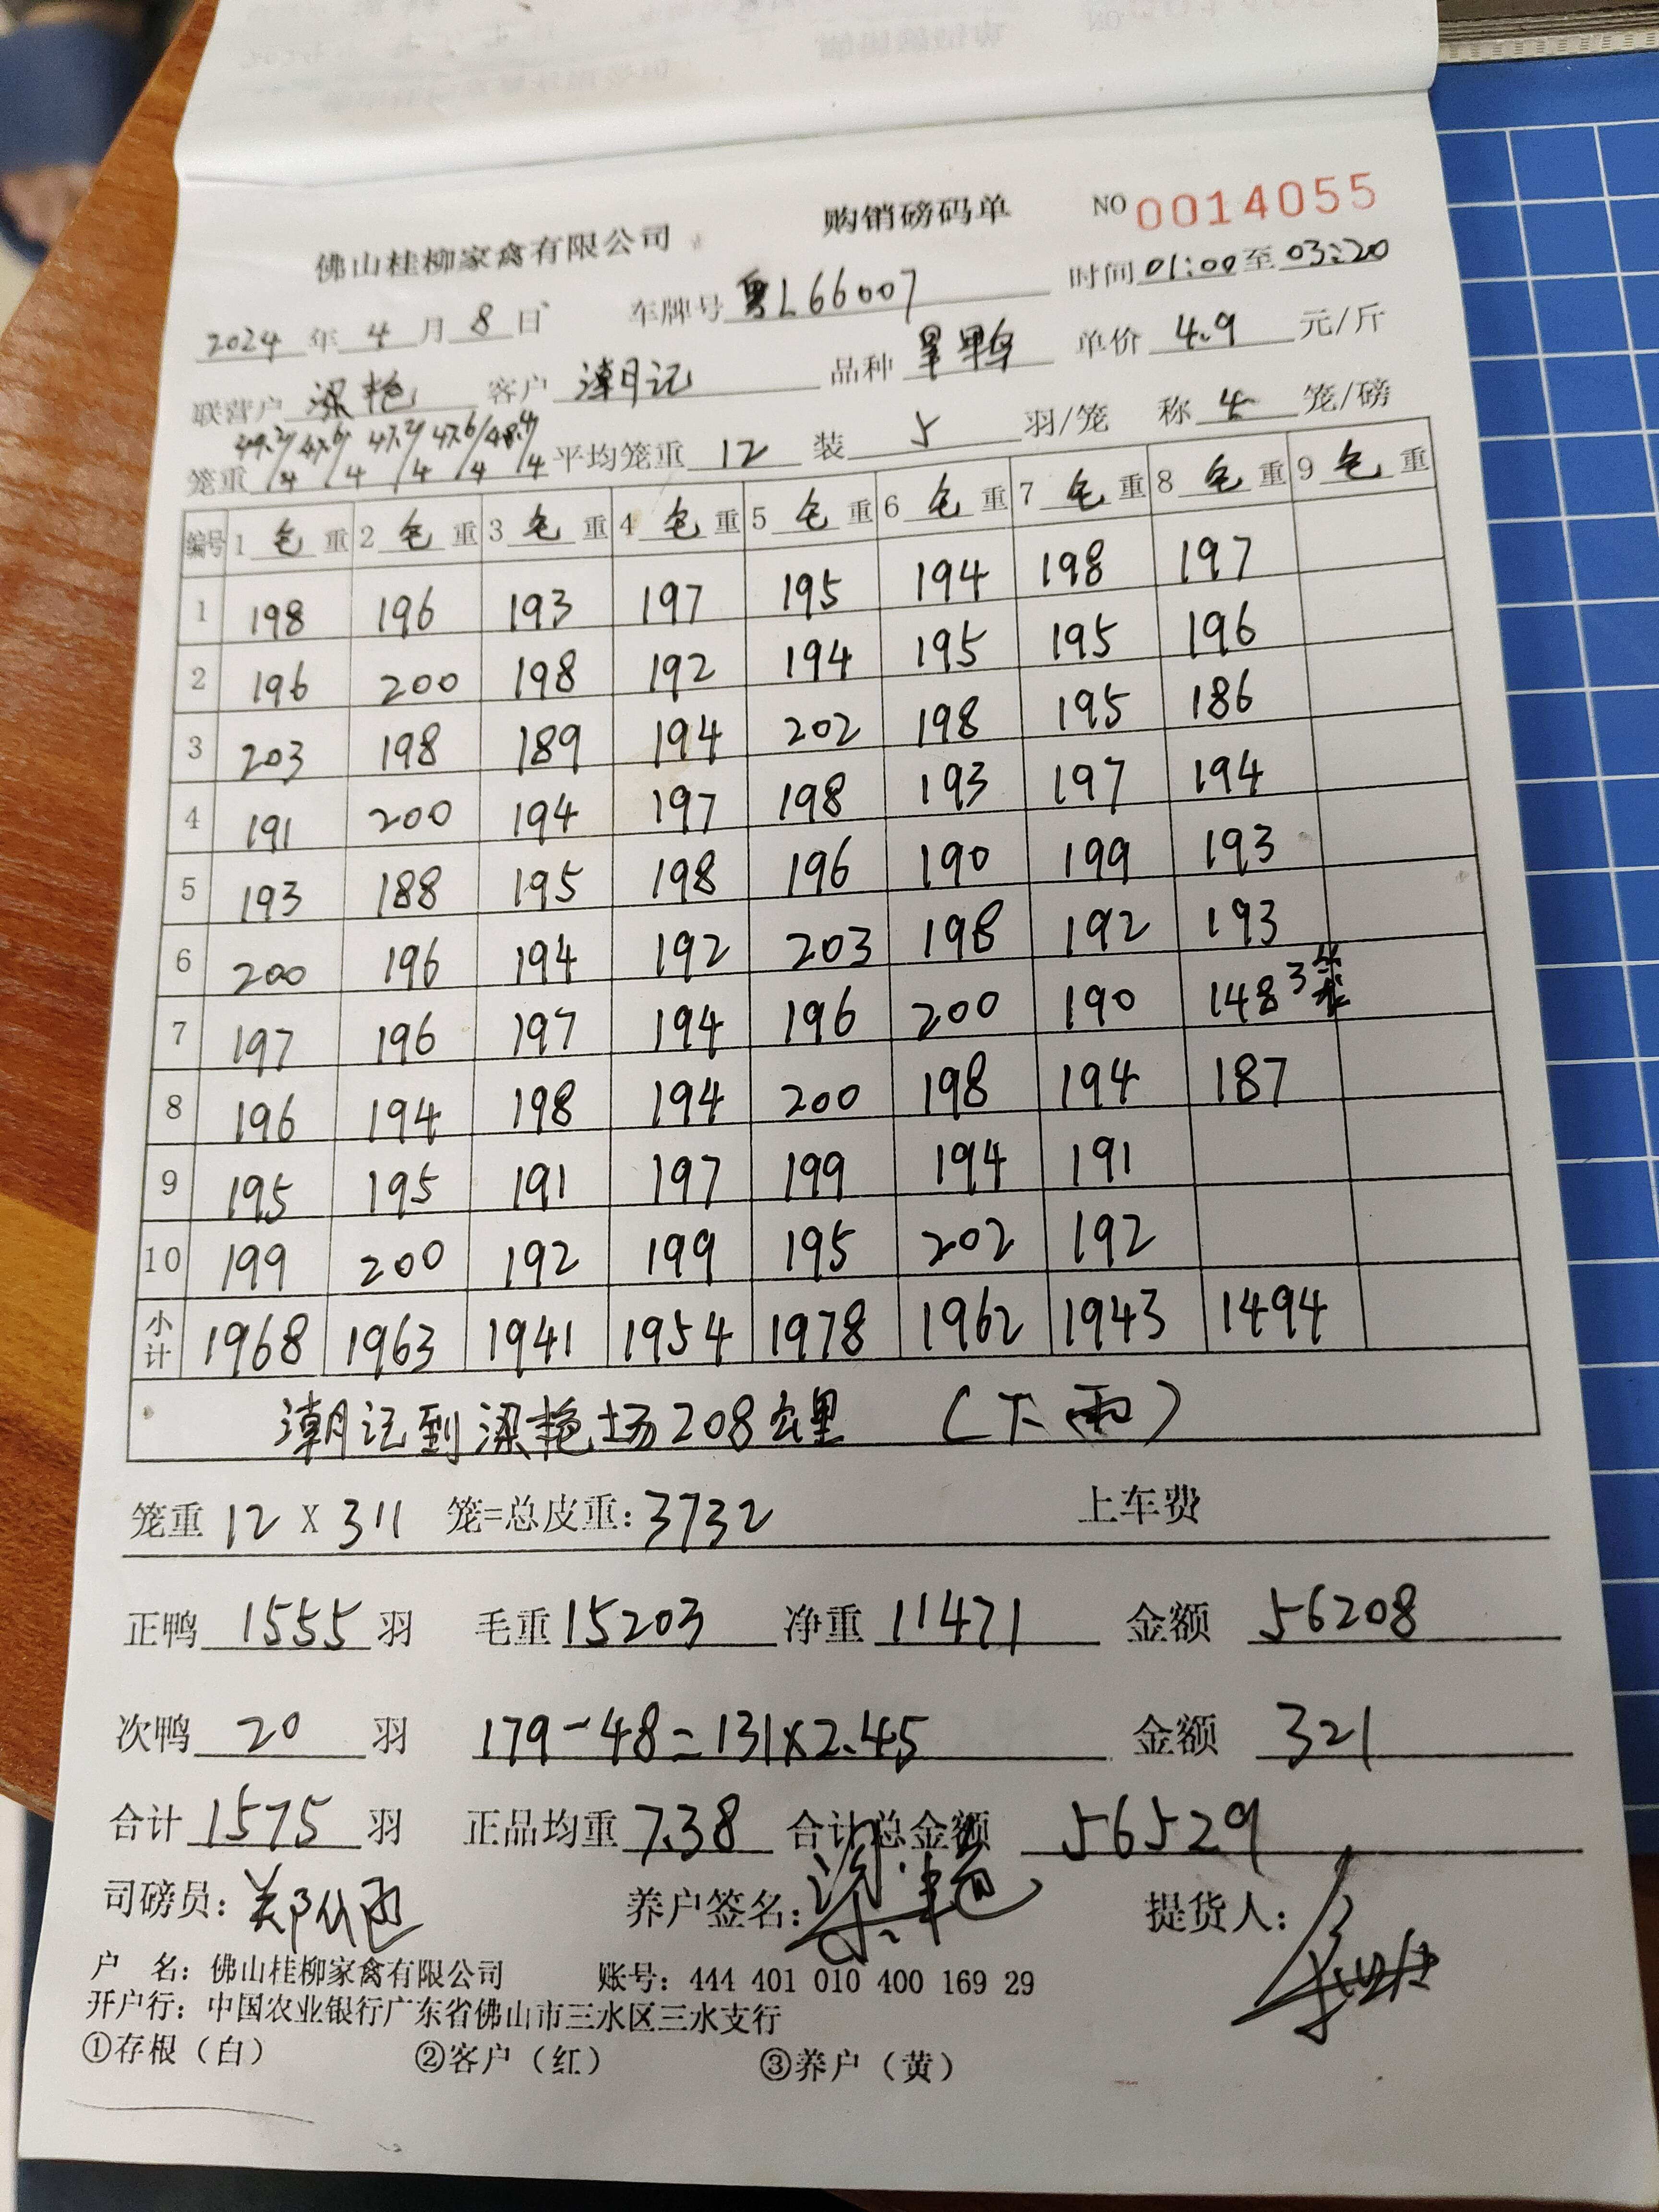 佛山桂柳家禽有限公司 购销磅码单 NO 0014055
2024 年 4 月 8 日 车牌号 粤L66007 时间 01:00 至 03:20
联营户 梁艳 客户 潮记 品种 旱鸭 单价 4.9 元/斤
笼重 47.6/4 47.2/4 47.6/4 48.4/4 平均笼重 12 装 5 羽/笼 称 4 笼/磅
编号 1 毛 重 2 毛 重 3 毛 重 4 毛 重 5 毛 重 6 毛 重 7 毛 重 8 毛 重 9 毛 重
1 198 196 193 197 195 194 198 197
2 196 200 198 192 194 195 195 196
3 203 198 189 194 202 198 195 186
4 191 200 194 197 198 193 197 194
5 193 188 195 198 196 190 199 193
6 200 196 194 192 203 198 192 193
7 197 196 197 194 196 200 190 148 3
8 196 194 198 194 200 198 194 187
9 195 195 191 197 199 194 191
10 199 200 192 199 195 202 192
小计 1968 1963 1941 1954 1978 1962 1943 1494
潮记到梁艳场208公里 (下雨)
笼重 12 X 311 笼=总皮重: 3732 上车费
正鸭 1555 羽 毛重 15203 净重 11471 金额 56208
次鸭 20 羽 179-48=131x2.45 金额 321
合计 1575 羽 正品均重 7.38 合计总金额 56529
司磅员: 养户签名: 梁艳 提货人:
户 名: 佛山桂柳家禽有限公司 账号: 444 401 010 400 169 29
开户行: 中国农业银行广东省佛山市三水区三水支行
①存根（白） ②客户（红） ③养户（黄）